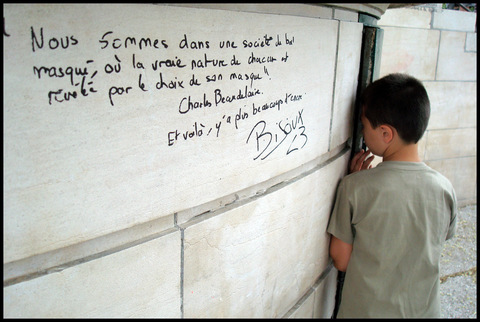 Nous Sommes dans une société du bal
masqué, où la vraie nature de chacun est
révélé par le choix de son masque"
Charles Beaudelaire.
Et voilà, y'a plus beaucoup d'encre.
Bisoux
23